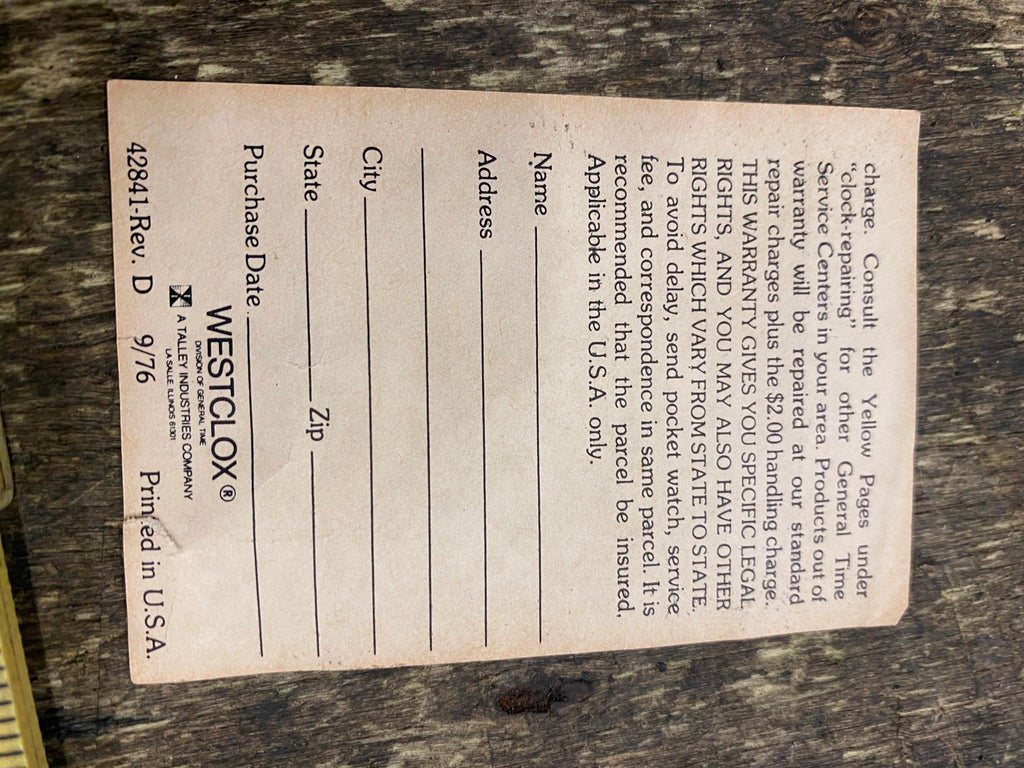 charge. Consult the Yellow Pages under
“clock-repairing” for other General Time
Service Centers in your area. Products out of
warranty will be repaired at our standard
repair charges plus the $2.00 handling charge.
THIS WARRANTY GIVES YOU SPECIFIC LEGAL
RIGHTS, AND YOU MAY ALSO HAVE OTHER
RIGHTS WHICH VARY FROM STATE TO STATE.
To avoid delay, send pocket watch, service
fee, and correspondence in same parcel. It is
recommended that the parcel be insured.
Applicable in the U.S.A. only.
Name
Address
City
State Zip
Purchase Date
WESTCLOX®
DIVISION OF GENERAL TIME
A TALLEY INDUSTRIES COMPANY
LA SALLE ILLINOIS 61301
42841-Rev. D 9/76 Printed in U.S.A.